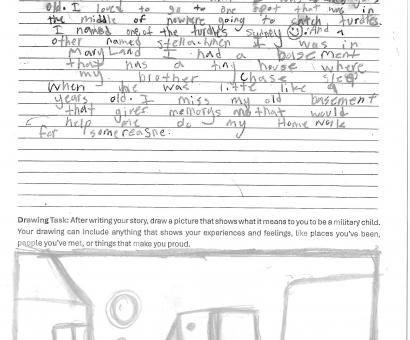 old. I loved to go to one spot that was in
the middle of nowhere going to catch turtles.
I named one of the turtles Sydney. And a
other named Stella. When I was in
Maryland I had a basement
that has a tiny house where
my brother Chase slep
When he was little like 9
years old. I miss my old basement
that gives memorys and that would
help me do my Home work
for some reasne.
Drawing Task: After writing your story, draw a picture that shows what it means to you to be a military child.
Your drawing can include anything that shows your experiences and feelings, like places you've been,
people you've met, or things that make you proud.